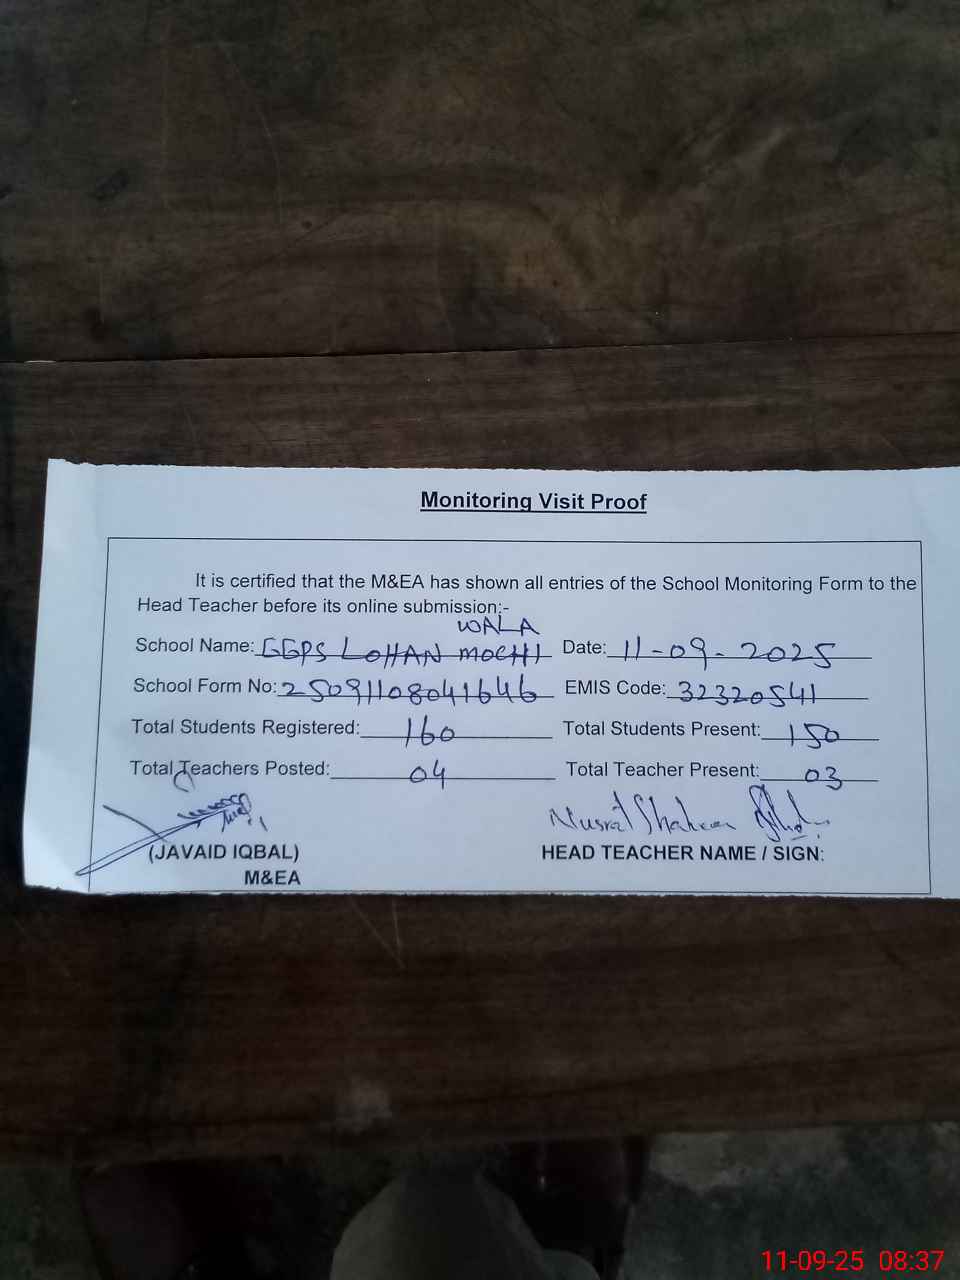 Monitoring Visit Proof
It is certified that the M&EA has shown all entries of the School Monitoring Form to the
Head Teacher before its online submission:-
WALA
School Name: GGPS LOHAN MOCHI Date: 11-09-2025
School Form No: 25091108041646 EMIS Code: 32320541
Total Students Registered: 160 Total Students Present: 150
Total Teachers Posted: 04 Total Teacher Present: 03
Nusrat Shaheen
(JAVAID IQBAL) HEAD TEACHER NAME / SIGN:
M&EA
11-09-25 08:37